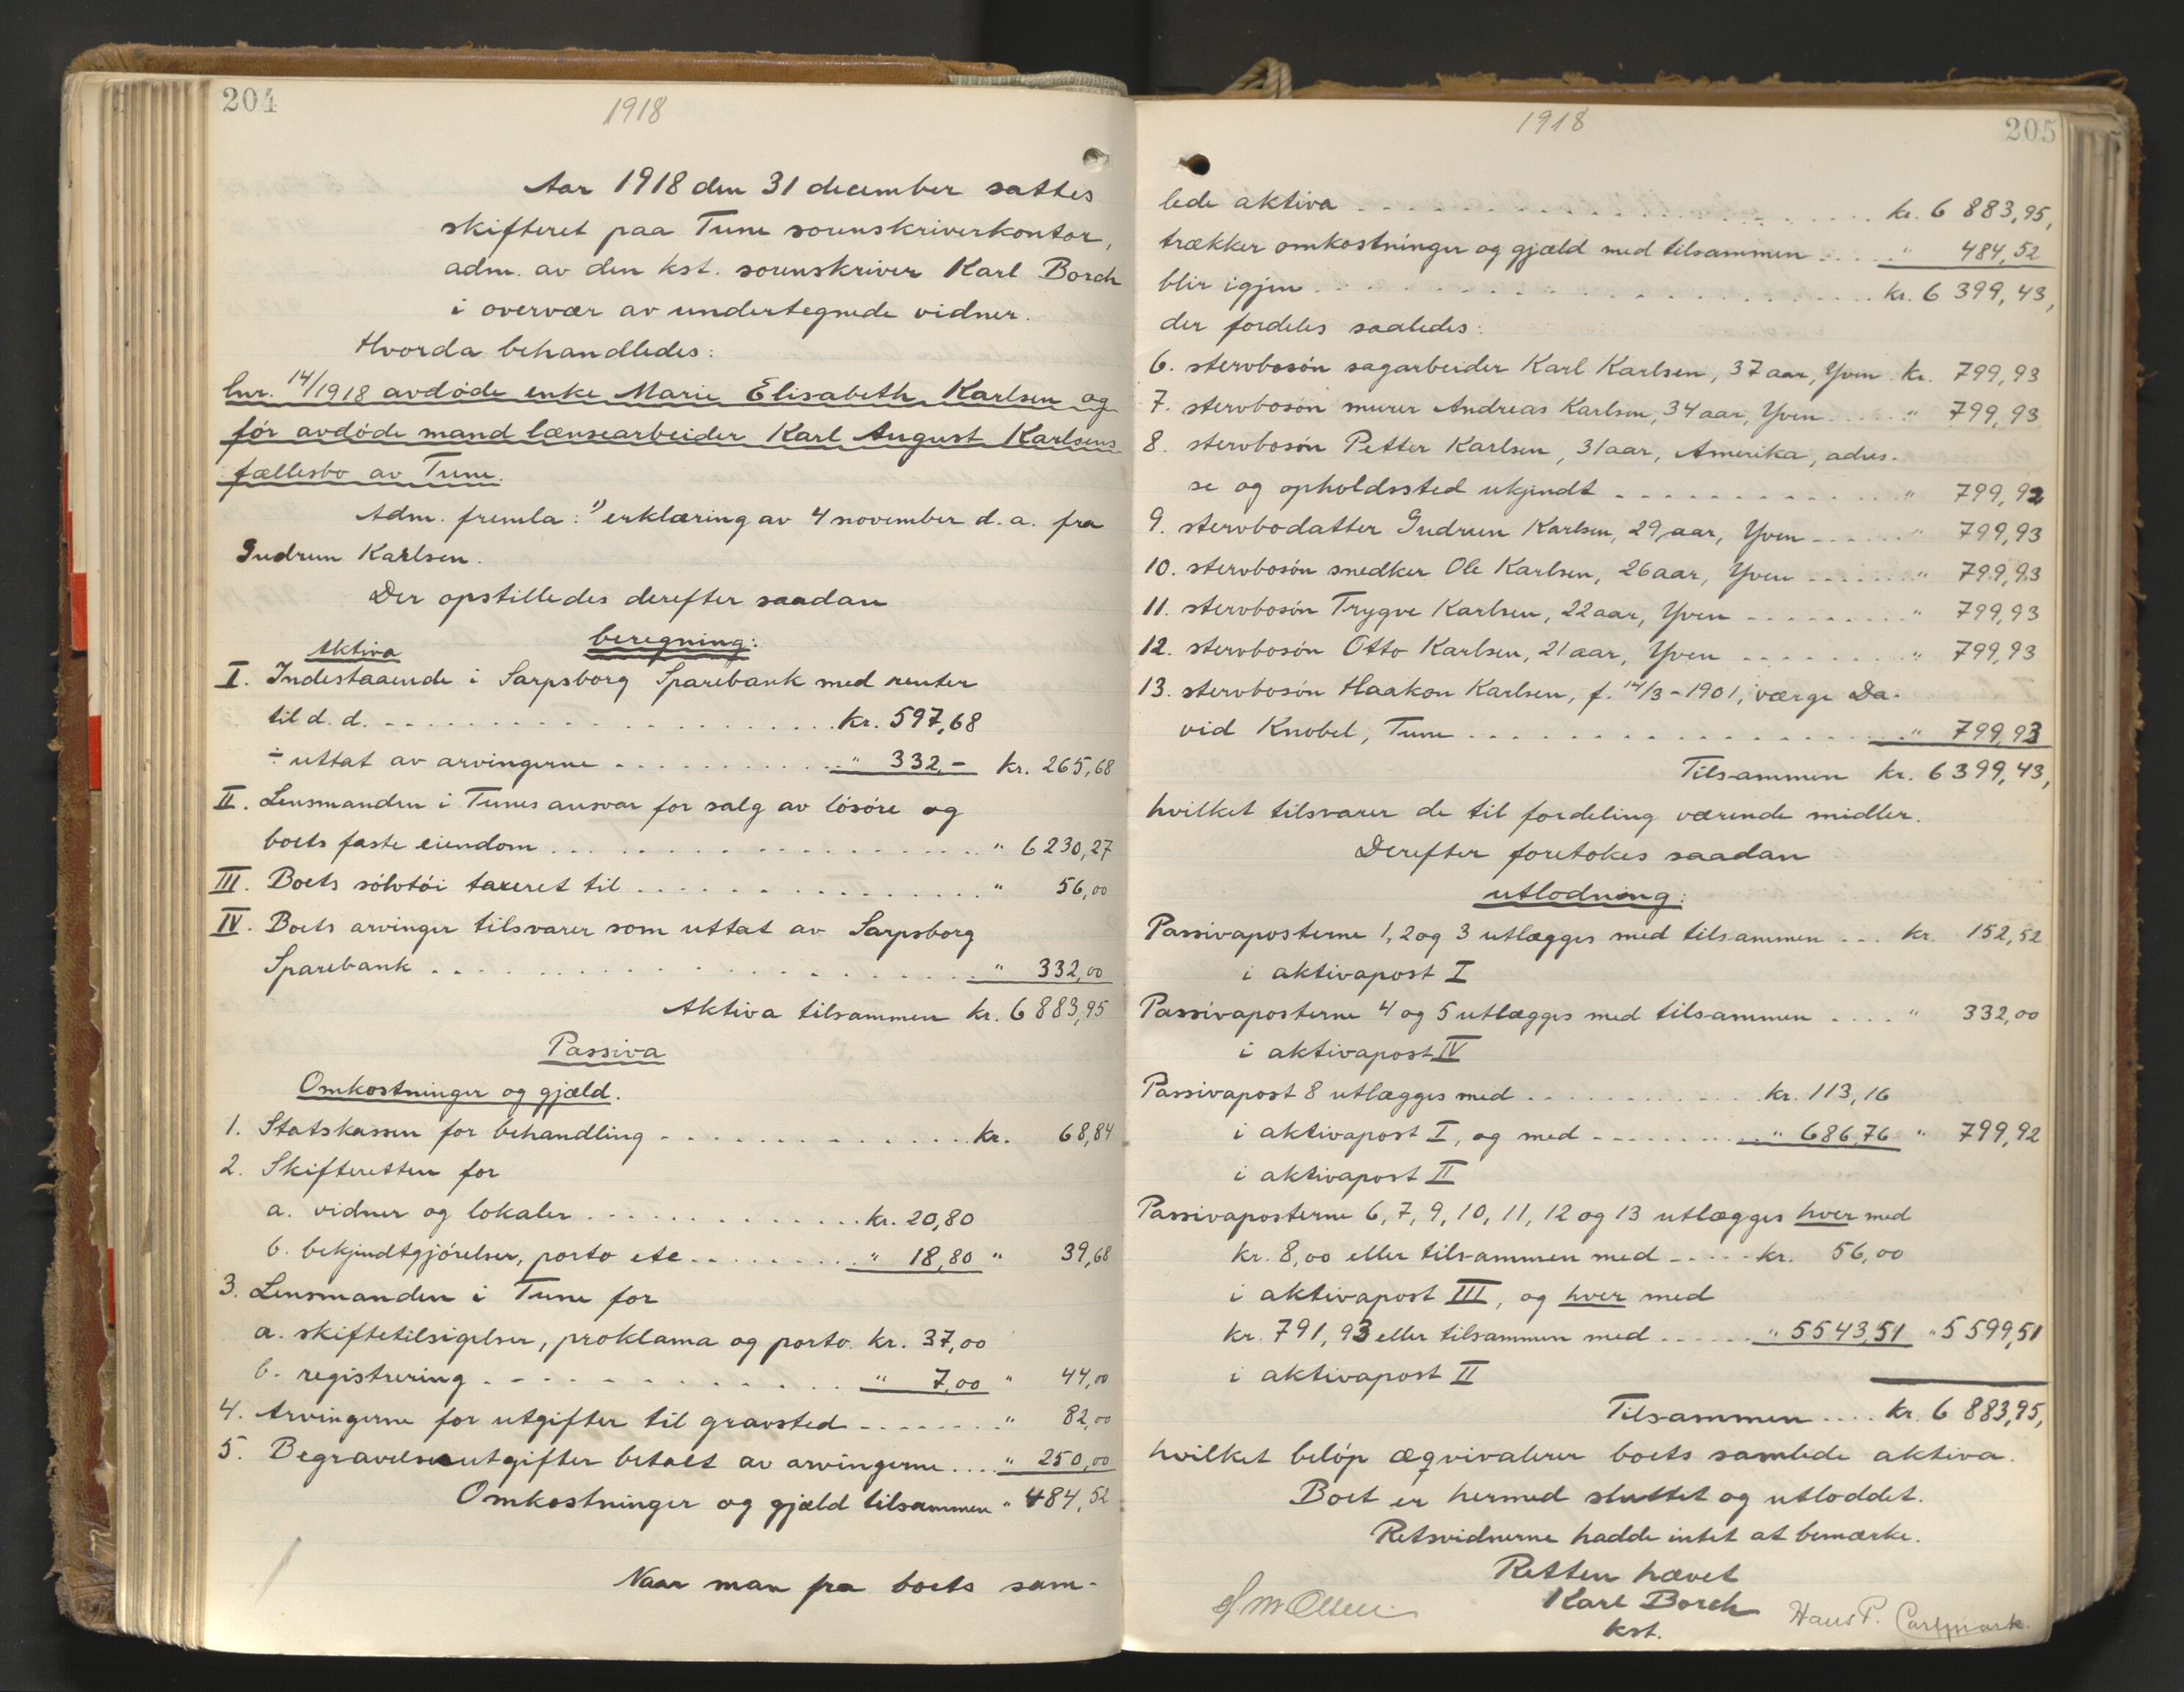 204
1918
Aar 1918 den 31 december sattes
skifteret paa Tune sorenskriverkontor,
adm. av den kst. sorenskriver Karl Borch
i overvær av undertegnede vidner.
Hvorda behandledes:
lnr. 14/1918 avdøde enke Marie Elisabeth Karlsen og
før avdøde mand lænsearbeider Karl August Karlsens
fællesbo av Tune.
Adm. fremla: 1) erklæring av 4 november d. a. fra
Gudrun Karlsen.
Der opstilledes derefter saadan
beregning:
Aktiva
I. Indestaaende i Sarpsborg Sparebank med renter
til d. d. - - - - - kr. 597,68
÷ uttat av arvingerne . . . . . " 332,- kr. 265,68
II. Lensmanden i Tunes ansvar for salg av løsøre og
boets faste eiendom . . . . . " 6230,27
III. Boets sølvtøi taxeret til . . . . . " 56,00
IV. Boets arvinger tilsvarer som uttat av Sarpsborg
Sparebank . . . . . " 332,00
Aktiva tilsammen kr. 6883,95
Passiva
Omkostninger og gjæld.
1. Statskassen for behandling - . . . . . kr. 68,84
2. Skifteretten for
a. vidner og lokaler . . . . . kr. 20,80
b. bekjendtgjørelser, porto etc. . . . . " 18,80 " 39,68
3. Lensmanden i Tune for
a. skiftetilsigelser, proklama og porto. kr. 37,00
b. registrering . . . . . " 7,00 " 44,00
4. Arvingerne for utgifter til gravsted - - - - - " 82,00
5. Begravelsesutgifter betalt av arvingerne . . . . " 250,00
Omkostninger og gjæld tilsammen " 484,52
Naar man fra boets sam-
1918
205
lede aktiva . . . . . kr. 6 883,95,
trækker omkostninger og gjæld med tilsammen . . . . . " 484,52
blir igjen . . . . . kr. 6 399,43,
der fordeles saaledes:
6. stervbosøn sagarbeider Karl Karlsen, 37 aar, Yven . kr. 799,93
7. stervbosøn murer Andreas Karlsen, 34 aar, Yven . . . . . " 799,93
8. stervbosøn Petter Karlsen, 31 aar, Amerika, adres-
se og opholdssted ukjendt . . . . . " 799,92
9. stervbodatter Gudrun Karlsen, 29 aar, Yven - - - - " 799,93
10. stervbosøn snedker Ole Karlsen, 26 aar, Yven . . . . . " 799,93
11. stervbosøn Trygve Karlsen, 22 aar, Yven - - - - - " 799,93
12. stervbosøn Otto Karlsen, 21 aar, Yven - - - - - " 799,93
13. stervbosøn Haakon Karlsen, f. 14/3-1901, værge Da-
vid Knobel, Tune . . . . . " 799,93
Tilsammen kr. 6399,43,
hvilket tilsvarer de til fordeling værende midler.
Derefter foretokes saadan
utlodning:
Passivaposterne 1, 2 og 3 utlægges med tilsammen . . . kr. 152,52
i aktivapost I
Passivaposterne 4 og 5 utlægges med tilsammen . . . . " 332,00
i aktivapost IV
Passivapost 8 utlægges med . . . . . kr. 113,16
i aktivapost I, og med - - - - - " 686,76 " 799,92
i aktivapost II
Passivaposterne 6, 7, 9, 10, 11, 12 og 13 utlægges hver med
kr. 8,00 eller tilsammen med - - - - kr. 56,00
i aktivapost III, og hver med
kr. 791,93 eller tilsammen med - - - - - " 5543,51 " 5599,51
i aktivapost II
Tilsammen . . . . kr. 6 883,95,
hvilket beløp æqvivalerer boets samlede aktiva.
Boet er hermed sluttet og utloddet.
Retsvidnerne hadde intet at bemærke.
Retten hævet
Karl Borch
kst.
Olsen
Hans P. Carlmark.